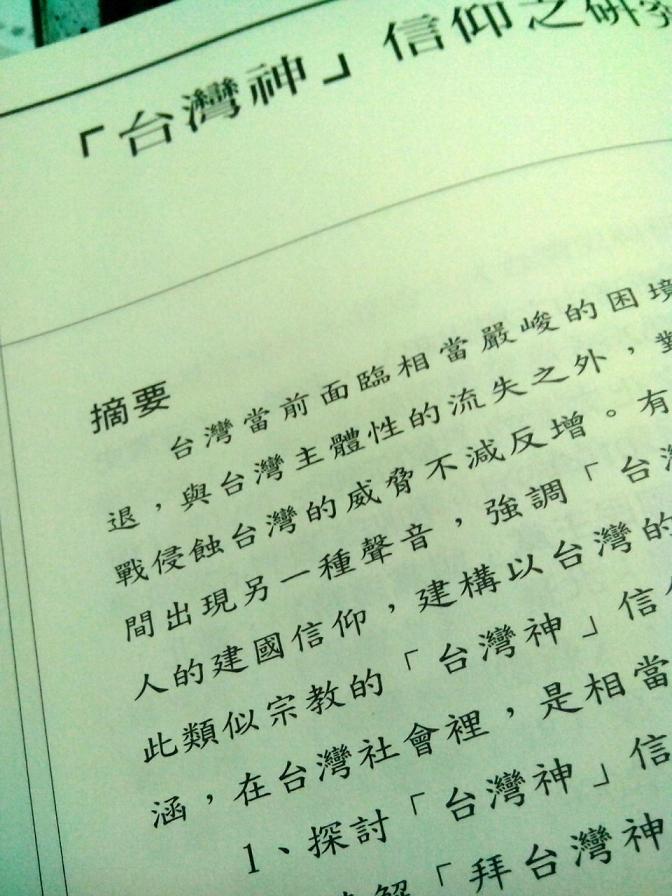 「台灣神」信仰之研究
摘要
台灣當前面臨相當嚴峻的困境
退，與台灣主體性的流失之外，對
戰侵蝕台灣的威脅不減反增。有
間出現另一種聲音，強調「台灣
人的建國信仰，建構以台灣的
此類似宗教的「台灣神」信仰
涵，在台灣社會裡，是相當
1、探討「台灣神」信
解「拜台灣神